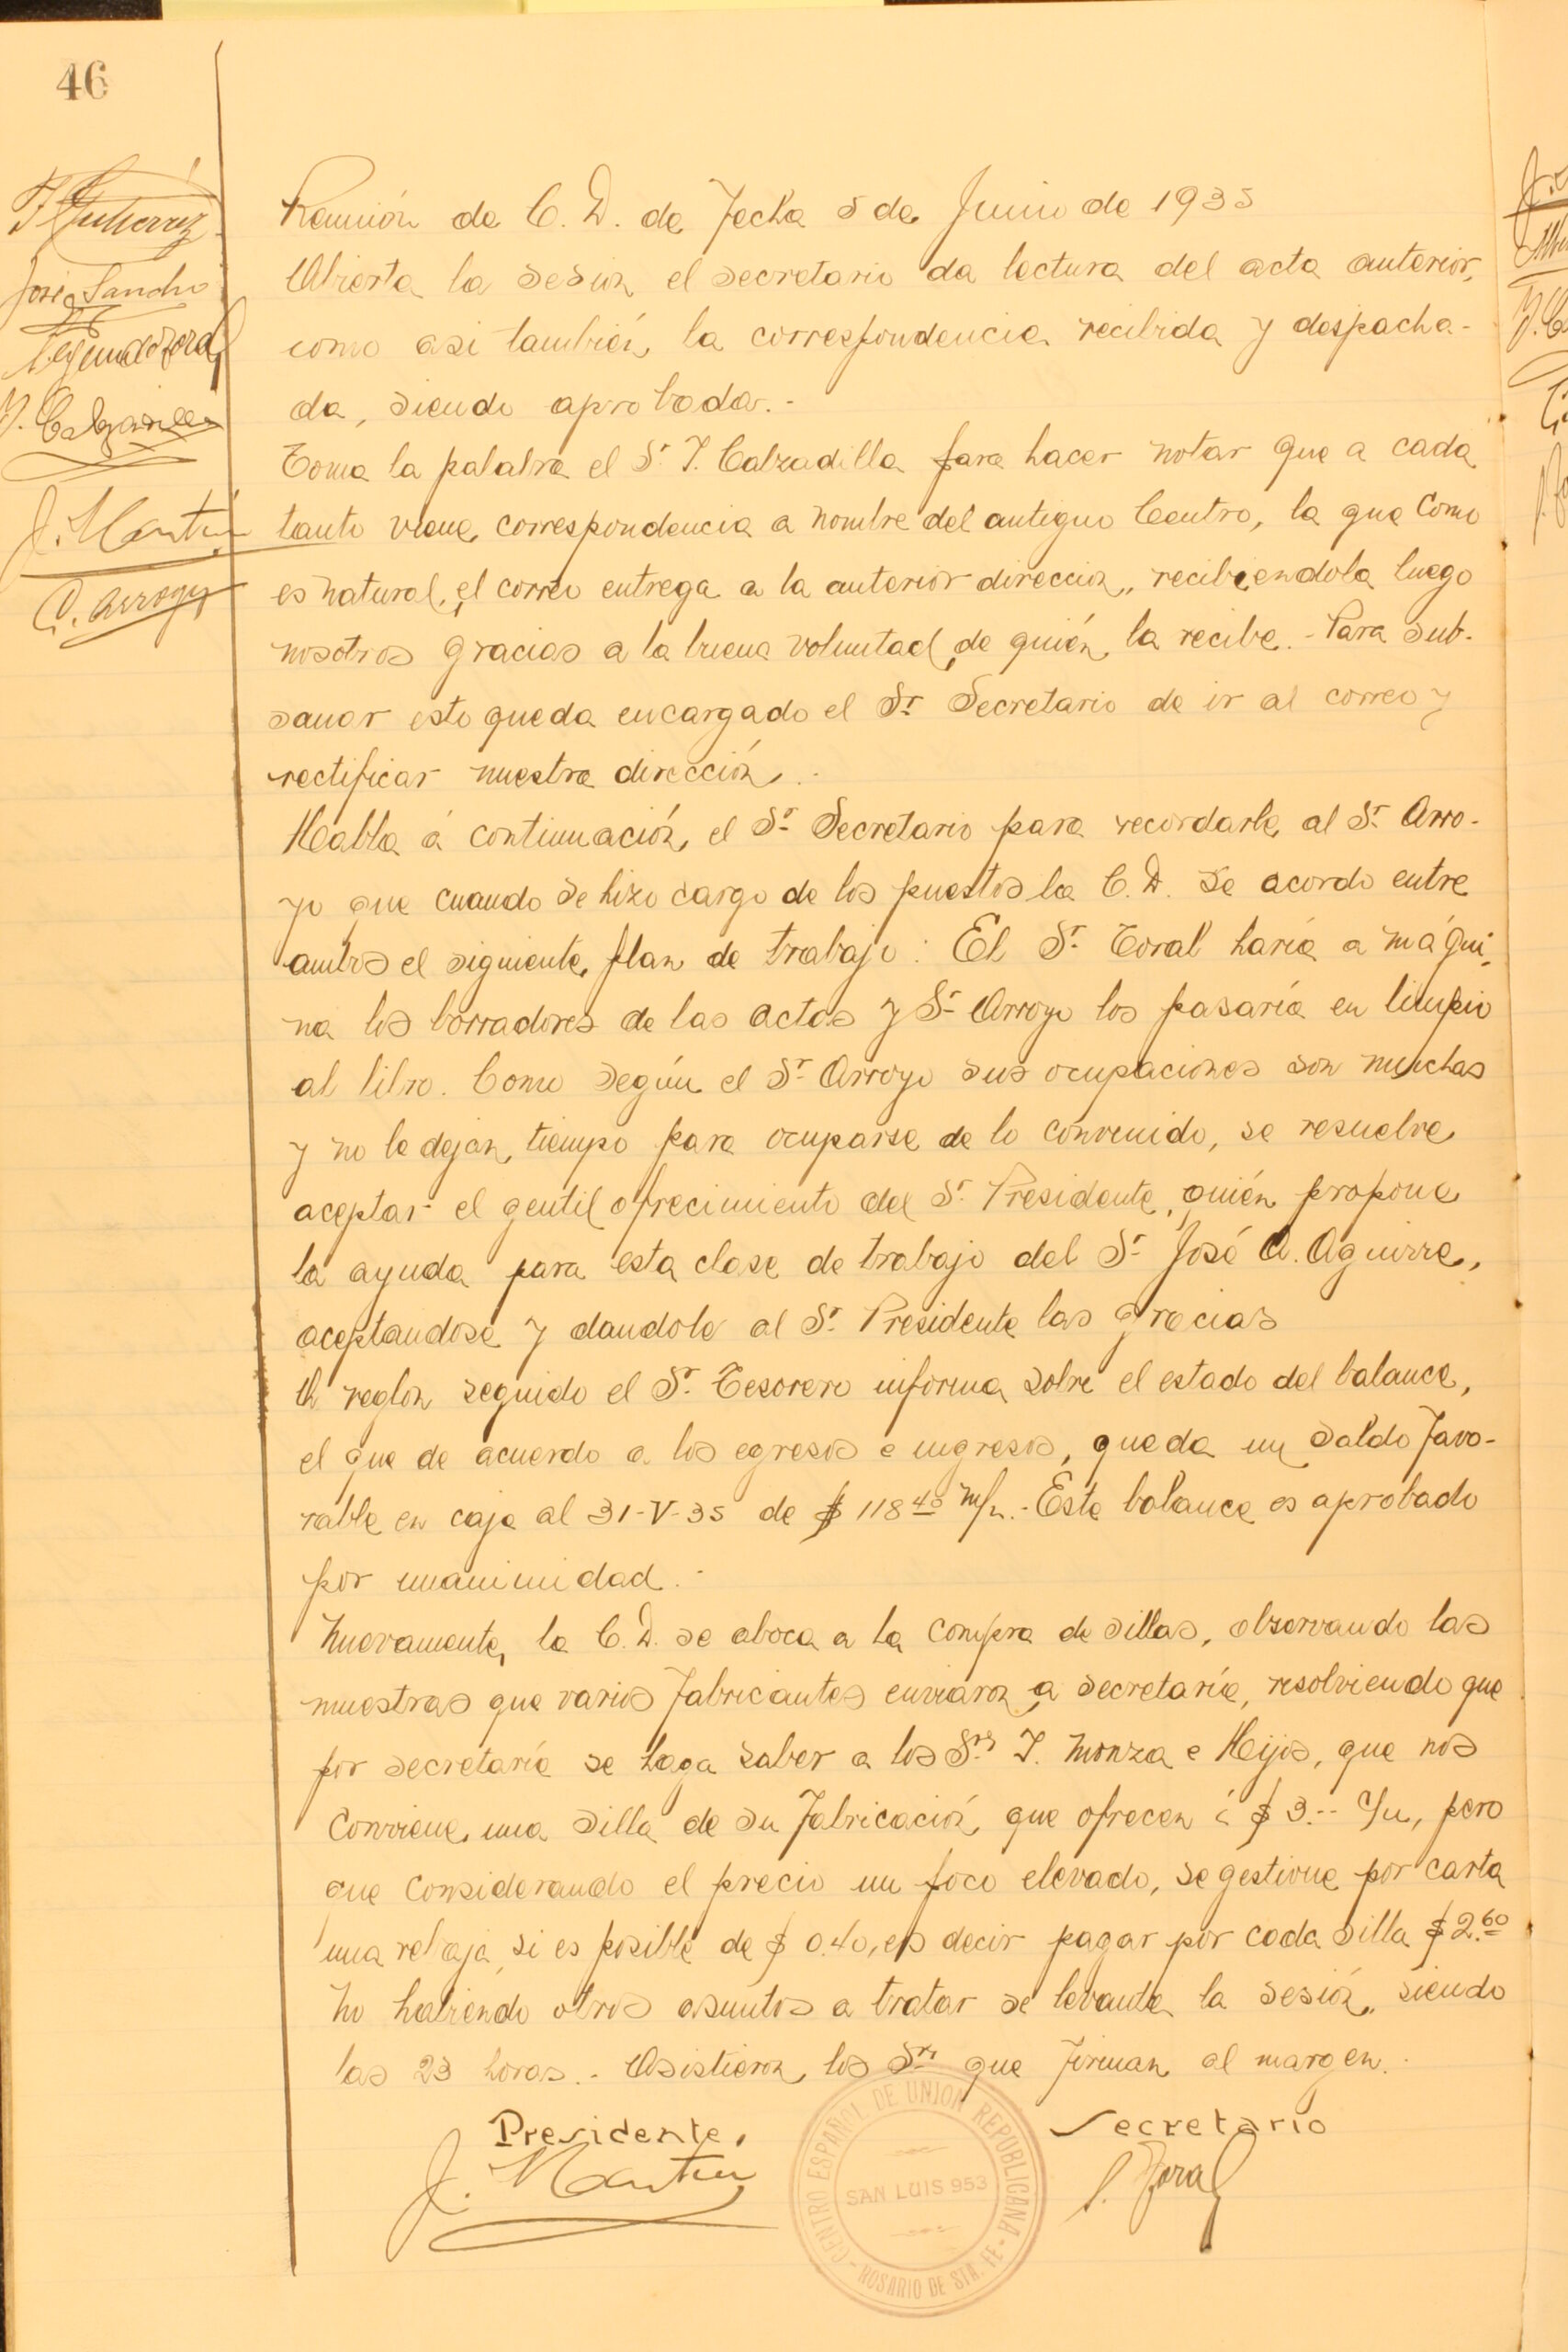 46
F. Gutierrez
José Sancho
Segundo Toral
J. Calzadilla
J. Martin
C. Arroyo
Reunión de C. D. de fecha 5 de Junio de 1935
Abierta la sesion el secretario da lectura del acta anterior,
como asi también, la correspondencia recibida y despacha-
da, siendo aprobada.-
Toma la palabra el Sr. J. Calzadilla para hacer notar que a cada
tanto viene, correspondencia a nombre del antiguo Centro, la que como
es natural, el correo entrega a la anterior direccion, recibiendola luego
nosotros gracias a la buena voluntad, de quién, la recibe.- Para sub-
sanar esto queda encargado el Sr. Secretario de ir al correo y
rectificar nuestra dirección.-
Habla á continuación, el Sr. Secretario para recordarle, al Sr. Arro-
yo que cuando se hizo cargo de los puestos la C. D. se acordo entre
ambos el siguiente, plan de trabajo: El Sr. Toral haría a máqui-
na los borradores de las actas y Sr. Arroyo los pasaría en limpio
al libro. Como según el Sr. Arroyo sus ocupaciones son muchas
y no le dejan, tiempo para ocuparse de lo convenido, se resuelve
aceptar el gentil ofrecimiento del Sr. Presidente, quién propone
la ayuda para esta clase de trabajo del Sr. José A. Aguirre,
aceptandose y dandole al Sr. Presidente las gracias
A reglon seguido el Sr. Tesorero informa sobre el estado del balance,
el que de acuerdo a los egresos e ingresos, queda un saldo favo-
rable en caja al 31-V-35 de $ 118.40 m/n.- Este balance es aprobado
por unanimidad.-
Nuevamente, la C. D. se aboca a la compra de sillas, observando las
muestras que varios fabricantes enviaron a secretaría, resolviendo que
por secretaría se haga saber a los Sres J. Monza e Hijos, que nos
conviene, una silla de su fabricación, que ofrecen á $ 3.-- c/u, pero
que considerando el precio un poco elevado, se gestione por carta
una rebaja, si es posible de $ 0.40, es decir pagar por cada silla $ 2.60
No habiendo otros asuntos a tratar se levanta la sesión, siendo
las 23 horas.- Asistieron, los Srs que firman al margen.-
Presidente, Secretario
J. Martin S. Toral
CENTRO ESPAÑOL DE UNION REPUBLICANA
SAN LUIS 953
- ROSARIO DE STA. FE -